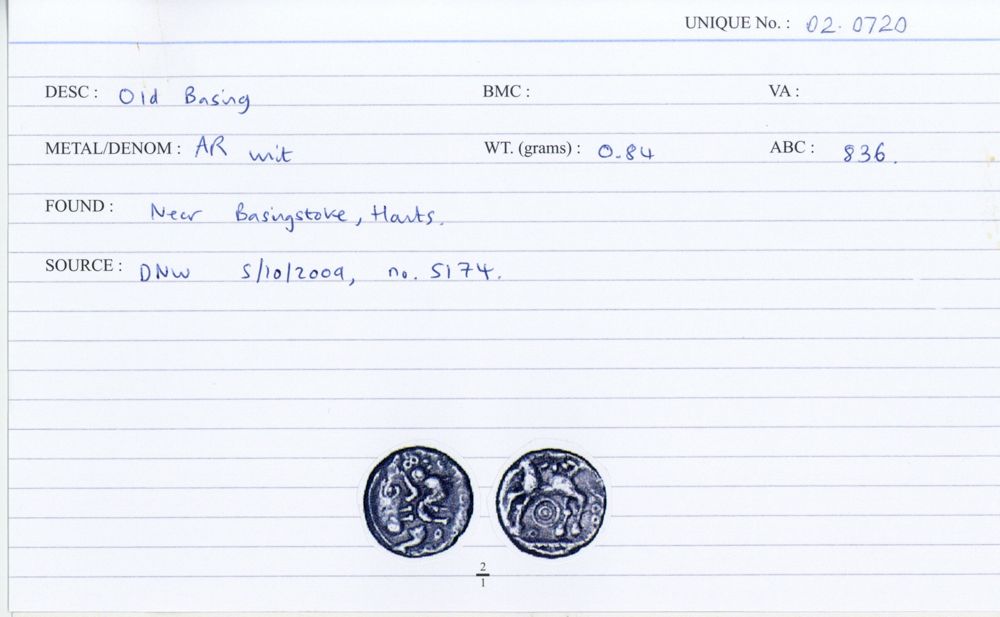 UNIQUE No. : 02. 0720
DESC : Old Basing BMC : VA :
METAL/DENOM : AR unit WT. (grams) : 0.84 ABC : 836.
FOUND : Near Basingstoke, Hants.
SOURCE : DNW 5/10/2009, no. 5174.
2
1